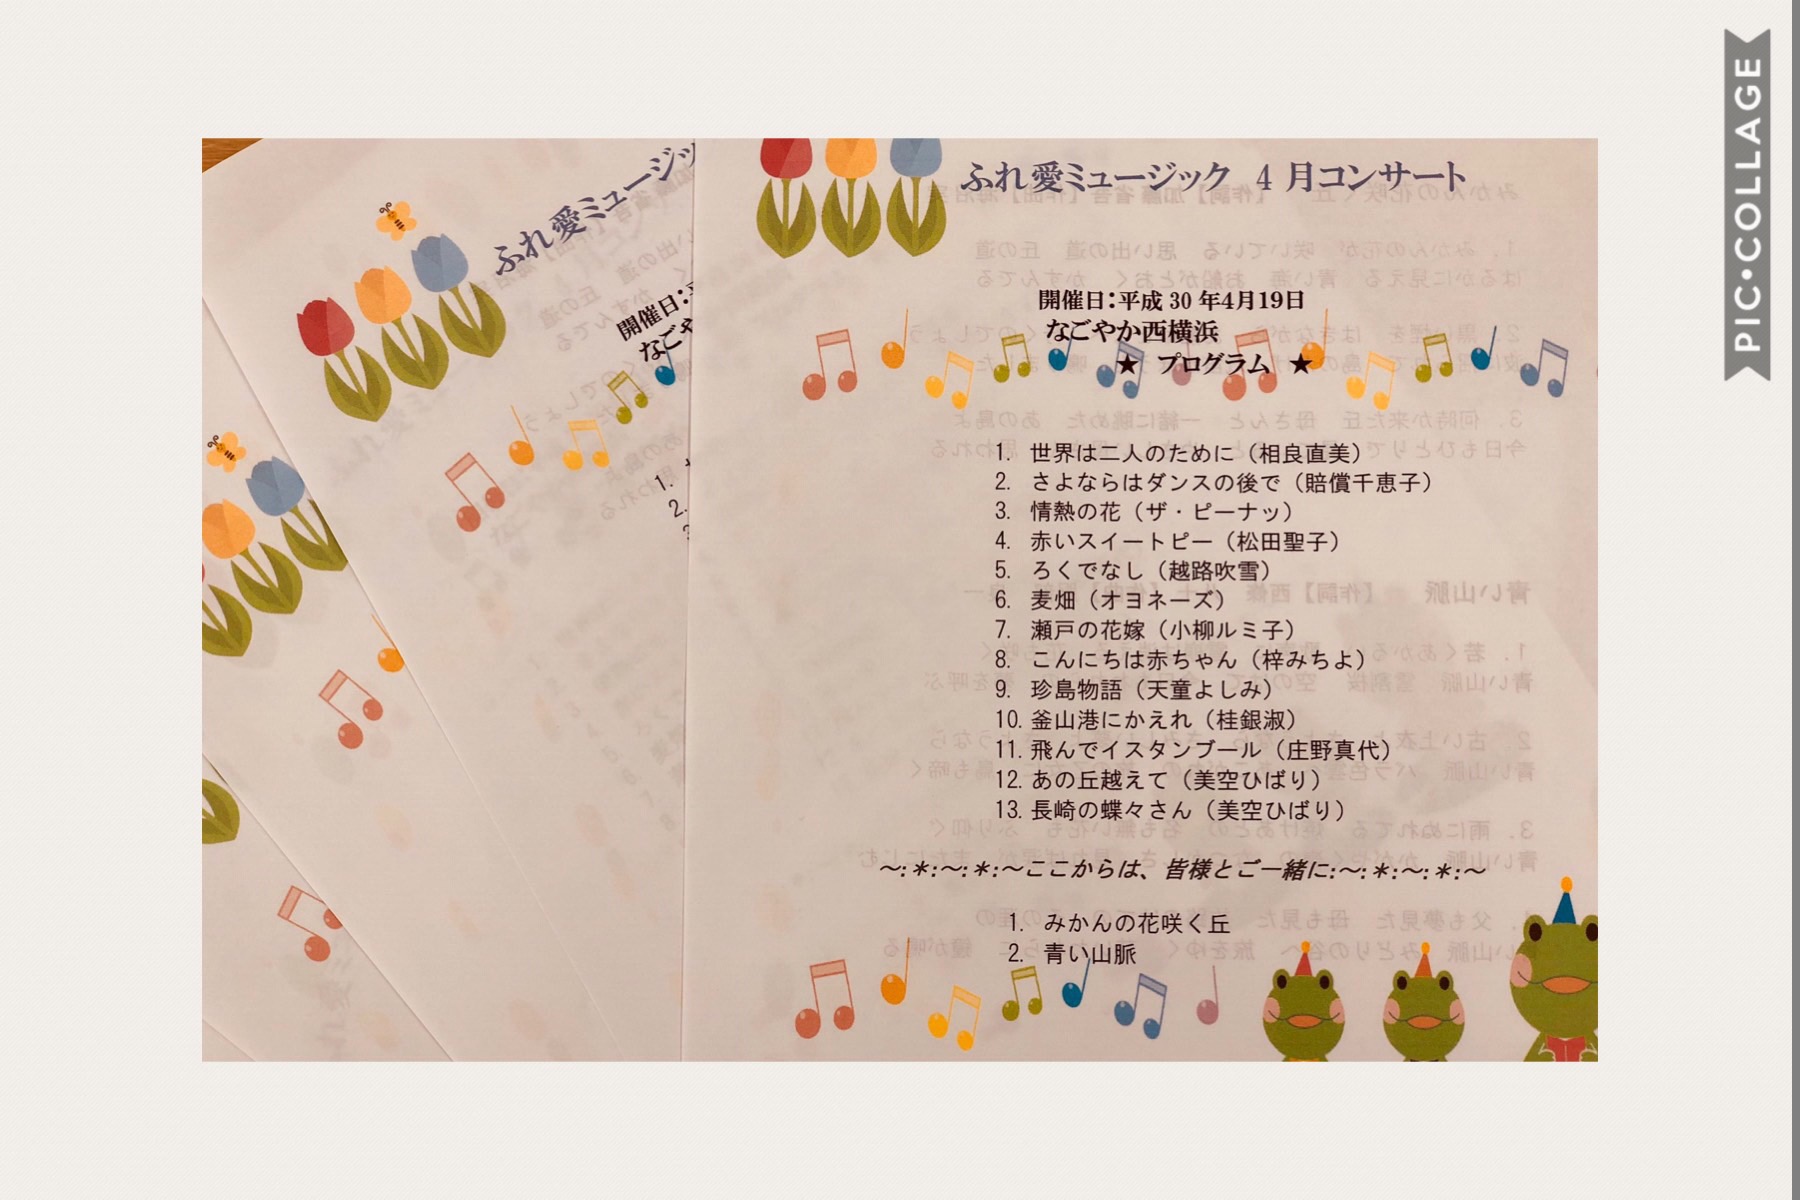 PIC•COLLAGE
ふれ愛ミュージッ
開催日:
なごや
1.
2.
ふれ愛ミュージック 4 月コンサート
開催日:平成 30 年4月19日
なごやか西横浜
★ プログラム ★
1. 世界は二人のために(相良直美)
2. さよならはダンスの後で(賠償千恵子)
3. 情熱の花(ザ・ピーナッ)
4. 赤いスイートピー(松田聖子)
5. ろくでなし(越路吹雪)
6. 麦畑(オヨネーズ)
7. 瀬戸の花嫁(小柳ルミ子)
8. こんにちは赤ちゃん(梓みちよ)
9. 珍島物語(天童よしみ)
10. 釜山港にかえれ(桂銀淑)
11. 飛んでイスタンブール(庄野真代)
12. あの丘越えて(美空ひばり)
13. 長崎の蝶々さん(美空ひばり)
～:＊:～:＊:～ここからは、皆様とご一緒に:～:＊:～:＊:～
1. みかんの花咲く丘
2. 青い山脈